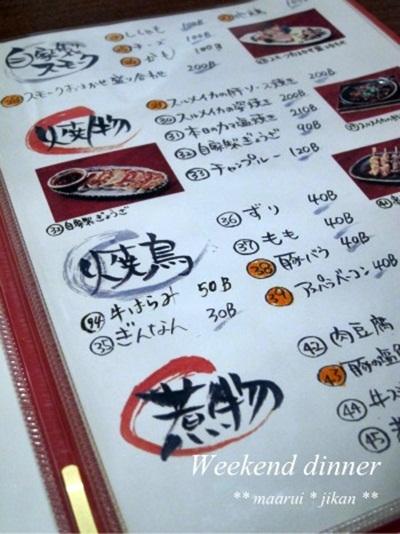 自家製スモーク
ししゃも
チーズ
かも 100g
㉘ スモークおまかせ盛り合わせ 200B
焼物
㉙ スルメイカの肝ソース焼き 200B
㉚ スルメイカの姿焼き 200B
㉛ 本日のカマ塩焼き 210B
㉜ 自家製ぎょうざ 90B
㉝ チャンプルー 120B
㉜ 自家製ぎょうざ
焼鳥
94 牛はらみ 50B
㉟ ぎんなん 30B
㊱ ずり 40B
㊲ もも 40B
㊳ 豚バラ 40B
㊴ アスパラベーコン 40B
煮物
㊷ 肉豆腐
㊸ 豚の塩角
㊹ 牛ス
㊺
Weekend dinner
** maarui * jikan **